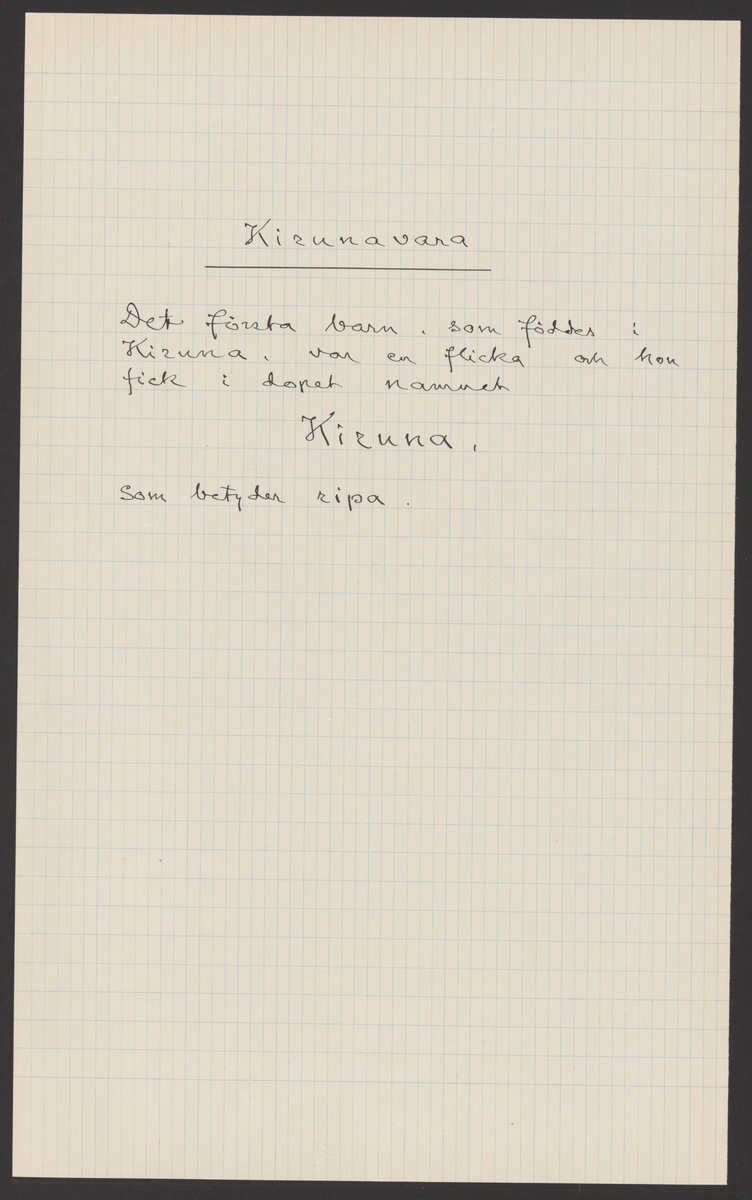 Kirunavara
Det första barn, som föddes i
Kiruna, var en flicka och hon
fick i dopet namnet
Kiruna,
som betyder ripa.